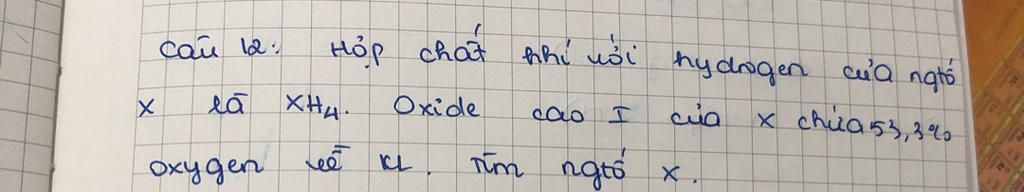 Câu 12: Hợp chất khí với hydrogen của ngtố
X là XH4. Oxide cao I của X chứa 53,3%
oxygen về KL. Tìm ngtố X.